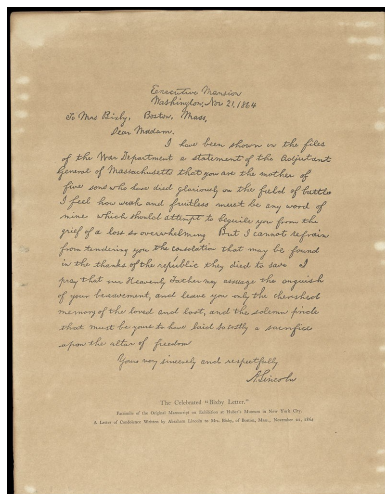 Executive Mansion
Washington, Nov 21, 1864
To Mrs Bixby, Boston, Mass,
Dear Madam,
I have been shown in the files
of the War Department a statement of the Adjutant
General of Massachusetts that you are the mother of
five sons who have died gloriously on the field of battle
I feel how weak and fruitless must be any word of
mine which should attempt to beguile you from the
grief of a loss so overwhelming But I cannot refrain
from tendering you the consolation that may be found
in the thanks of the republic they died to save I
pray that our Heavenly Father may assuage the anguish
of your bereavement, and leave you only the cherished
memory of the loved and lost, and the solemn pride
that must be yours to have laid so costly a sacrifice
upon the altar of freedom
Yours very sincerely and respectfully
A. Lincoln
The Celebrated "Bixby Letter."
Facsimile of the Original Manuscript on Exhibition at Huber's Museum in New York City.
A Letter of Condolence Written by Abraham Lincoln to Mrs. Bixby, of Boston, Mass., November 21, 1864